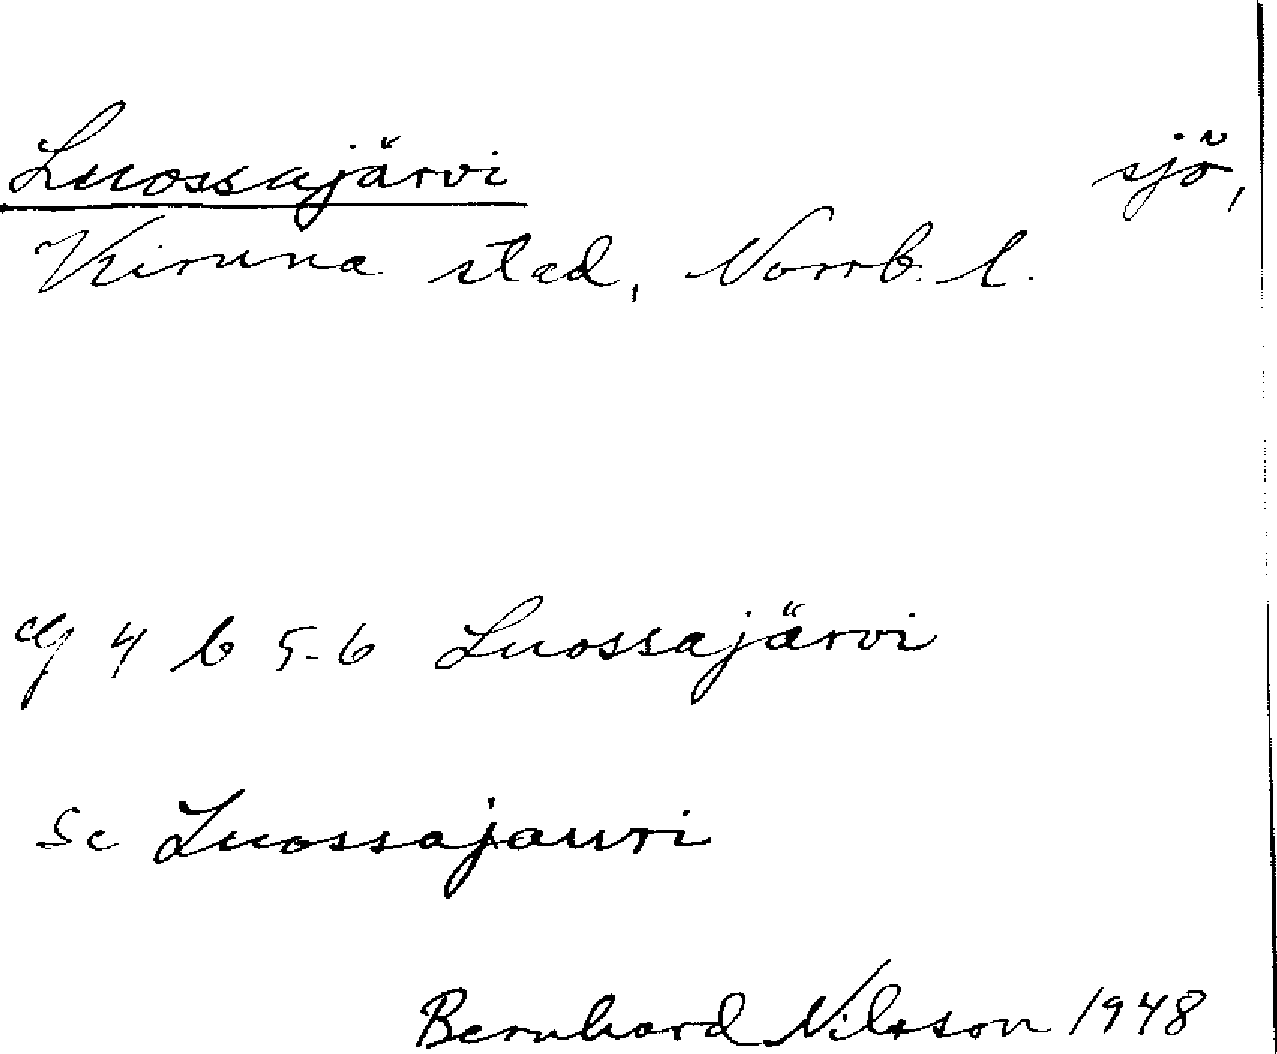 Luossajärvi sjö,
Kiruna stad, Norrb. l.
4 b 5-6 Luossajärvi
Se Luossajauri
Bernhard Nilsson 1948